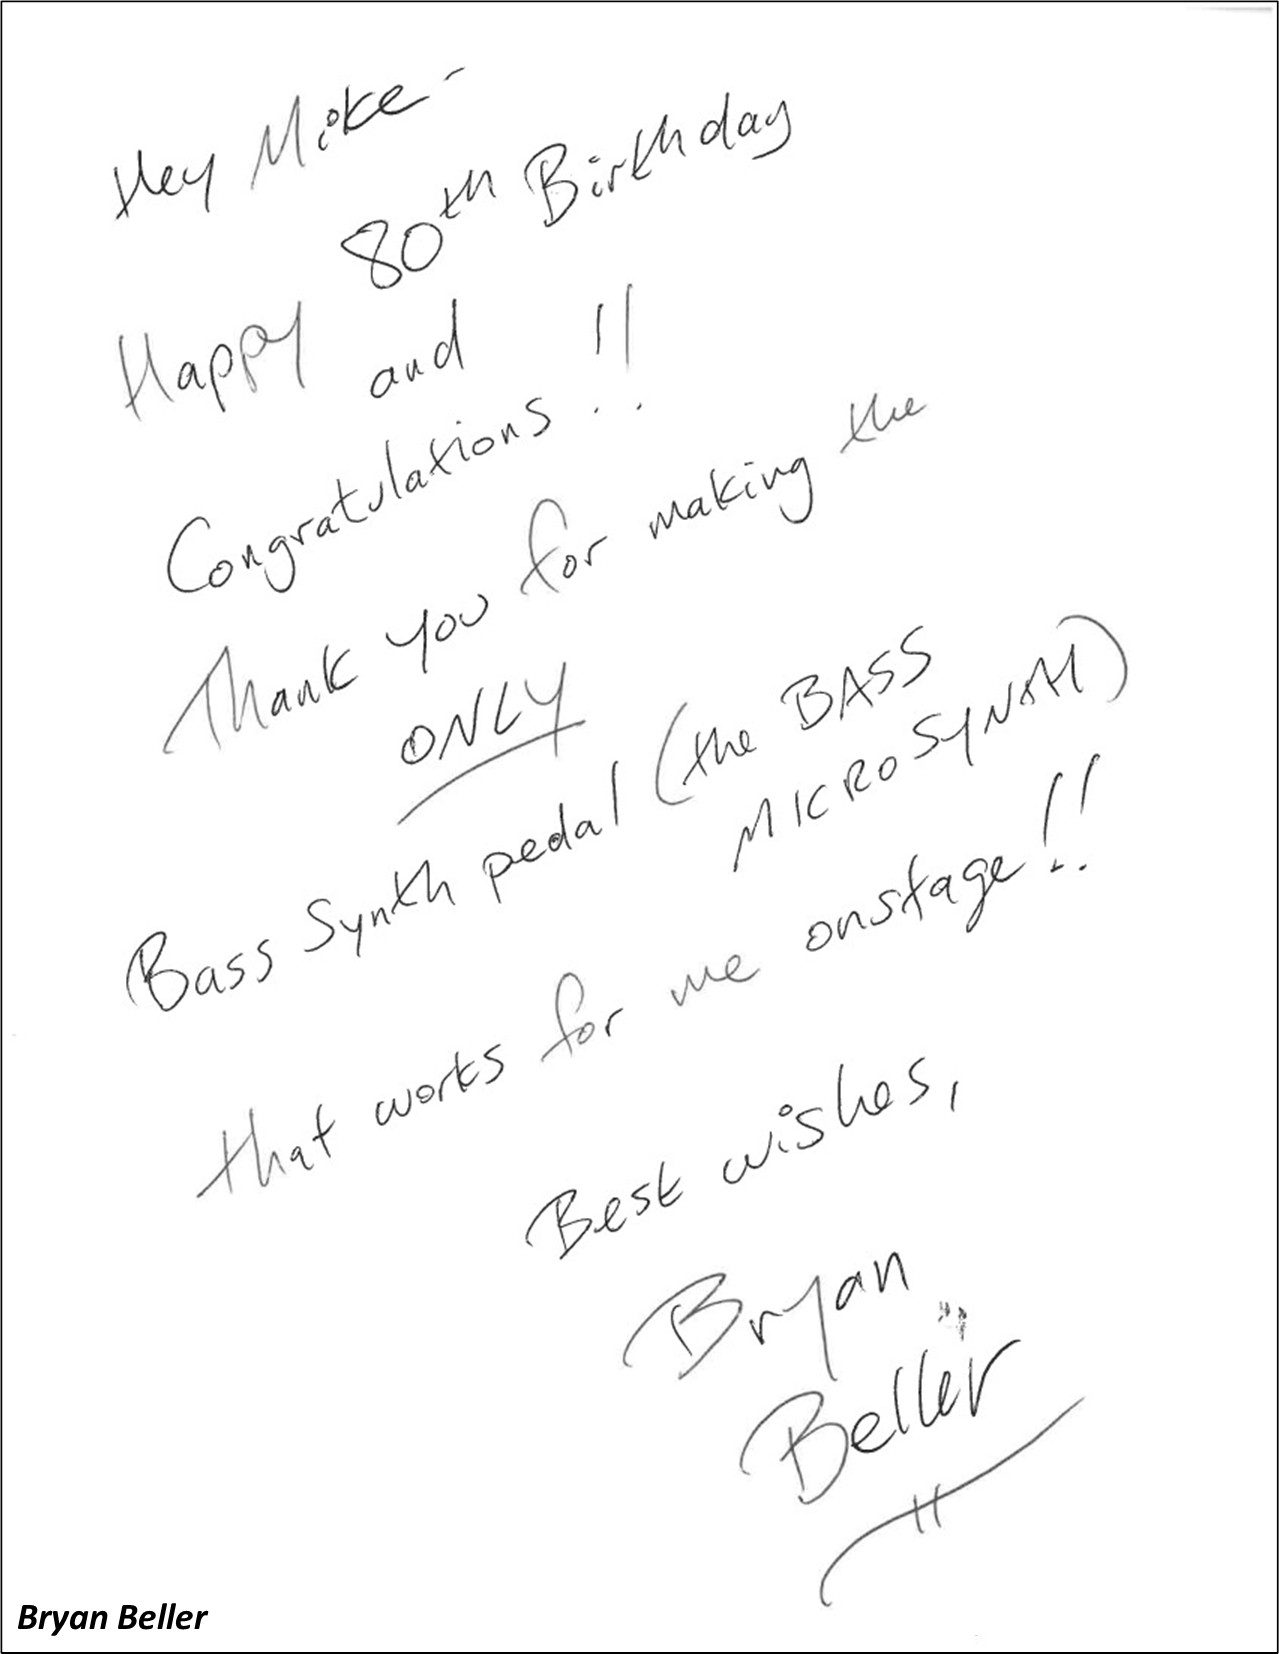 Hey Mike -
Happy 80th Birthday
and
Congratulations!!
Thank you for making the
ONLY
Bass Synth pedal (the BASS
MICROSYNTH)
that works for me onstage!!
Best wishes,
Bryan
Beller
Bryan Beller